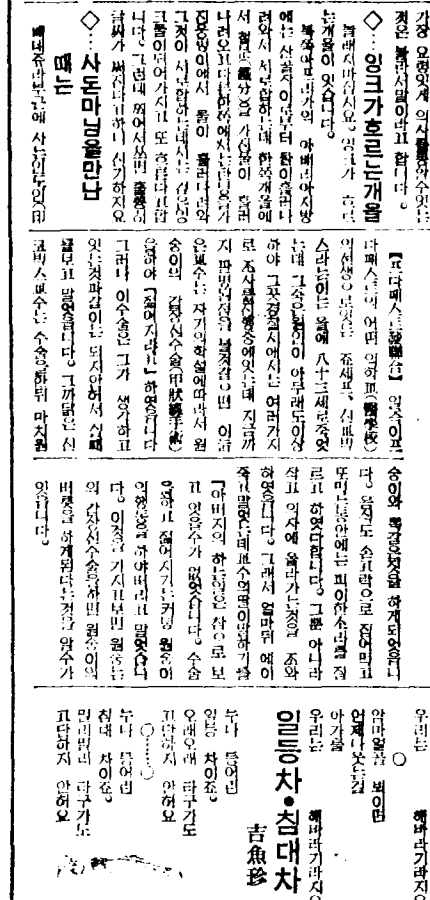 가장 요령잇게 의사를알수잇는
것은 불란서말이라고 합니다。
◇…잉크가흐르는개울
놀래지마십시요。잉크가 흐르
는개울이 잇습니다。
북쪽아프리카의 아베리아지방
에는 산골작이로부터 물이흘러나
려와서 서로합하는데 한쪽개울에
서 철분(鐵分)을 가진물이 흘러
나려오고 다른한쪽에서는
에서 물이 흘러나려와
그것이 서로합하는데서는 검은잉
크물이되어가지고 또 흐른다고합
니다。그런데 찍어서쓰면
글씨가 써진다고하니 신기하지요
◇…사돈마님을만난
때는
에 사는
【부다페스트聯合】
다페스트의 어떤 의학교(醫學校)
의선생으로잇는 죠세프、신코빅
스라는이는 올에 八十三세로죽엇
는데 그죽은원인이 아무래도이상
하야 그곳경찰서에서는 여러가지
로 조사를진행중에잇는데 지금까
지 판명된점을 볼것같으면 이늙
은교수는 자기의학설에따라서 원
숭이의 갑상선수술(甲狀線手術)
을하야 『젊어지라고』하엿습니다
그러나 이수술은 그가 생각하고
잇는것과같이는 되지아니해서 실패
를보고 말엇습니다。그까닭은 신
코빅스교수는 수술을한뒤 마치원
숭이와 똑같은짓을 하게되엇습니
다。음식도 손고락으로 집어먹고
또먹는동안에는 괴이한소리를 질
르고 하엿다합니다。그뿐 아니라
작고 의자에 올라가는것을 조와
하엿습니다。그래서 얼마뒤에이
죽고말엇는데교수의딸이말하기를
『아버지의 하는일은 참으로 보
고 잇을수가 없엇습니다。수술
을하고 젊어지기는커녕 원숭이
의행동을 하야버리고 말엇습니
다。이것을 가지고보면 원숭이
의 갑상선수술을하면 원숭이의
버릇을 하게된다는것을 알수가
잇습니다。
우리는 해바라기라지요
○
엄마얼골 뵈이면
언제나웃는걸
아가들
우리는 해바라기라지요
일등차•침대차
吉魚珍
누나 등어린
일등 차이죠。
오래오래 타구가도
고단하지 안허요
○……○
누나 등어린
침대 차이죠。
멀리멀리 타구가도
고단하지 안허요